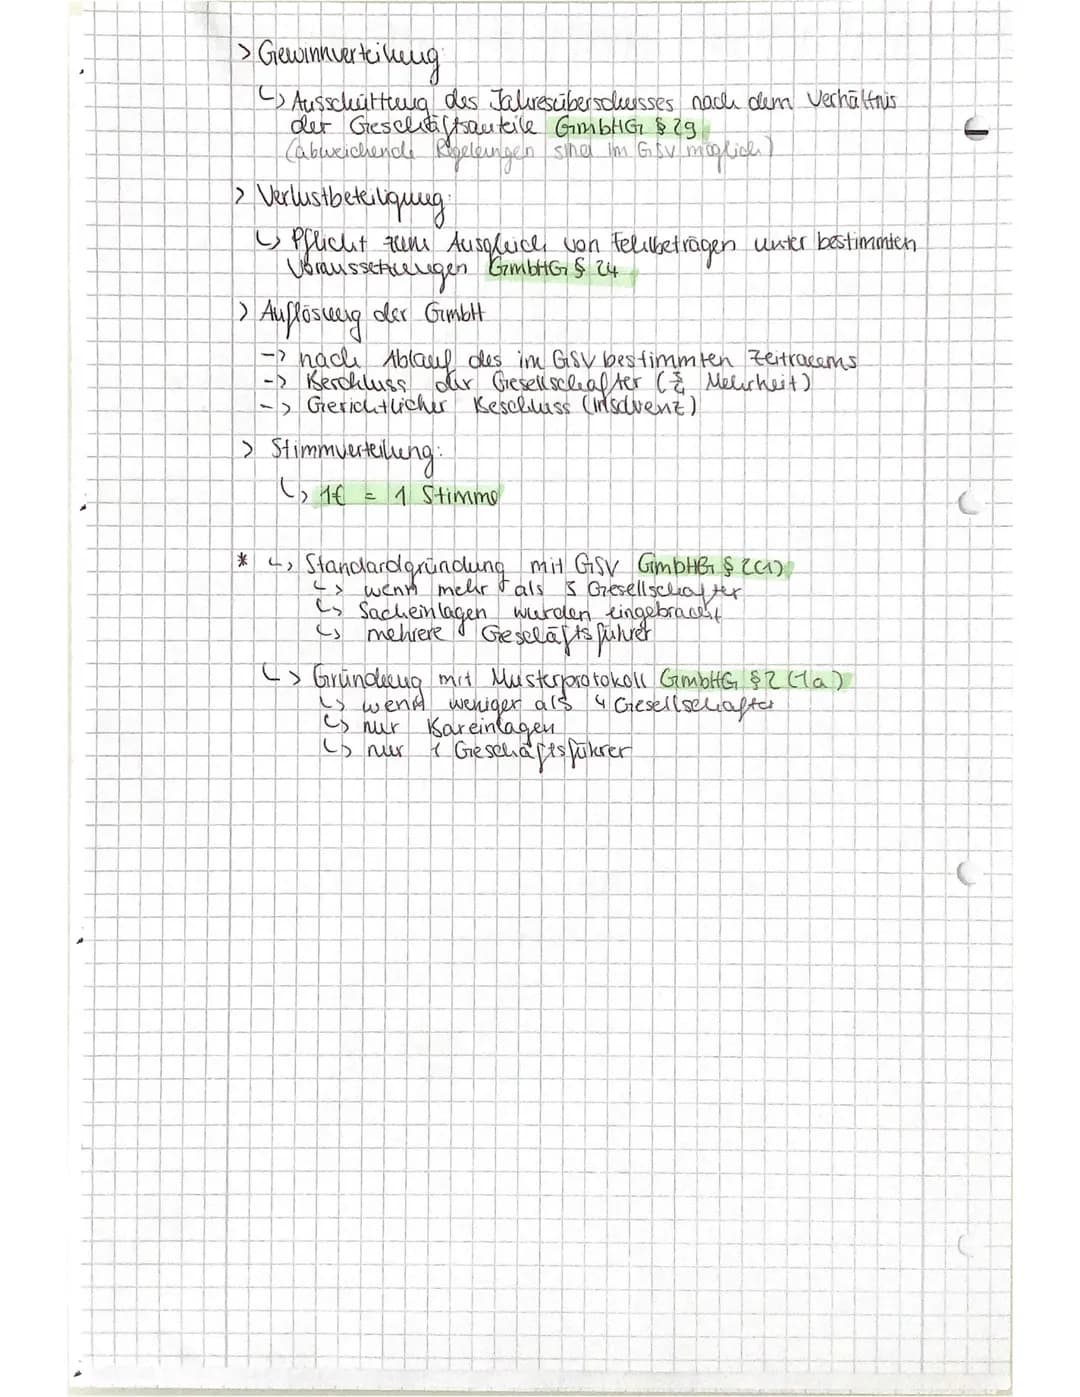 > Gewinnverteilung:
↳ Ausschüttung des Jahresüberschusses nach dem Verhältnis
der Geschäftsanteile GmbHG § 29
(abweichende Regelungen sind im GSV möglich)
> Verlustbeteiligung:
↳ Pflicht zum Ausgleich von Fehlbeträgen unter bestimmten
Voraussetzungen GmbHG § 24
> Auflösung der GmbH
-> nach Ablauf des im GSV bestimmten Zeitraums
-> Beschluss der Gesellschafter (¾ Mehrheit)
-> Gerichtlicher Beschluss (Insolvenz)
> Stimmverteilung:
↳ 1€ = 1 Stimme
* ↳ Standardgründung mit GSV GmbHG § 2(1)
↳ wenn mehr als 3 Gesellschafter
↳ Sacheinlagen wurden eingebracht
↳ mehrere Geschäftsführer
↳ Gründung mit Musterprotokoll GmbHG § 2 (1a)
↳ wenn weniger als 4 Gesellschafter
↳ nur Bareinlagen
↳ nur 1 Geschäftsführer